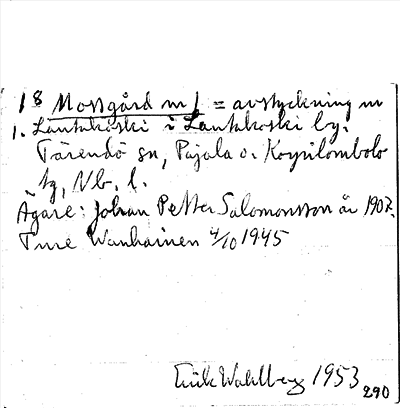 18 Mossgård nr 1 = avstyckning nr
1. Lautakoski i Lautakoski by.
Tärendö sn, Pajala o. Korpilombolo
tg, Nb. l.
Ägare: Johan Petter Salomonsson år 1907.
Ture Wanhainen 4/10 1945
Erik Wahlberg 1953
290